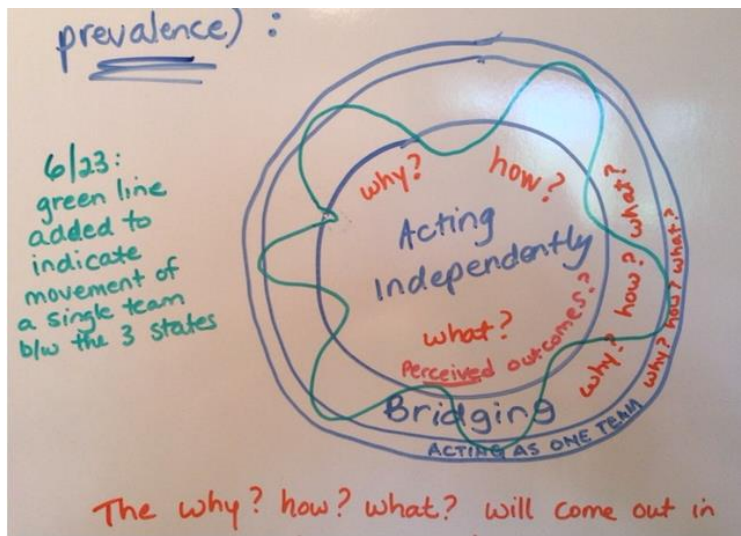 prevalence) :
6/23:
green line
added to
indicate
movement of
a single team
b/w the 3 states
why?
how?
Acting
Independently
what?
Perceived outcomes?
why? how? what?
why? how? what?
Bridging
ACTING AS ONE TEAM
The why? how? what? will come out in